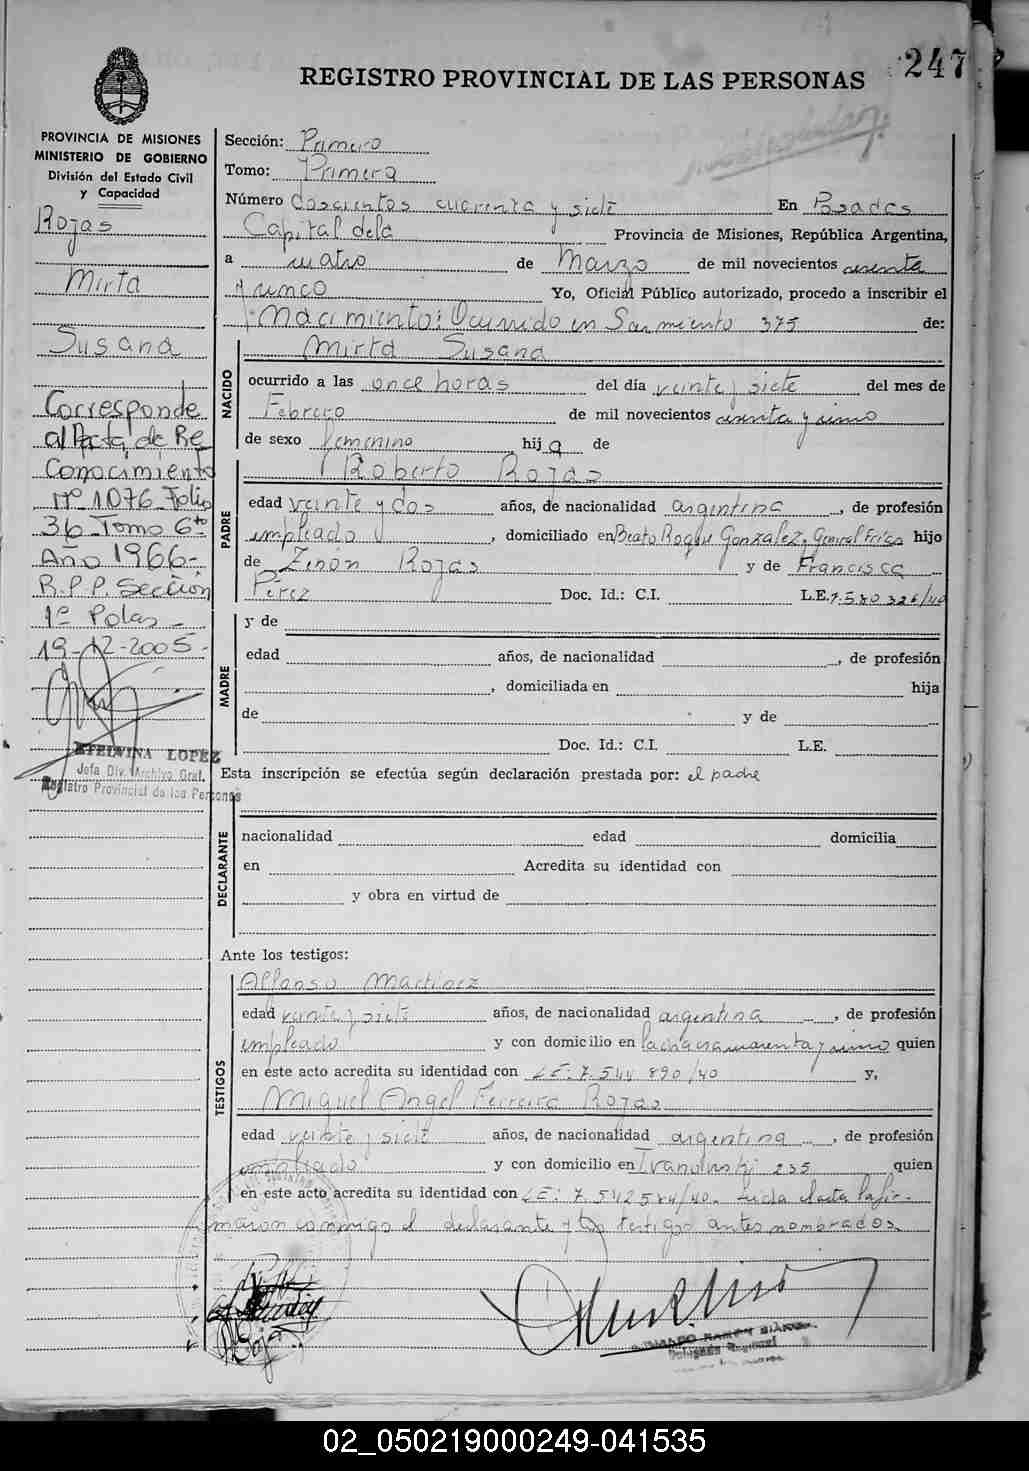 247
REGISTRO PROVINCIAL DE LAS PERSONAS
PROVINCIA DE MISIONES
MINISTERIO DE GOBIERNO
División del Estado Civil
y Capacidad
Rojas
Mirta
Susana
Corresponde
al Acta de Re
Conocimiento
Nº 1076 Folio
36 Tomo 6to
Año 1966-
R.P.P. Sección
1ª Pdas -
19-12-2005-
ETELVINA LOPEZ
Jefa Div. Archivo Gral.
Registro Provincial de las Personas
Sección: Primera
Tomo: Primera
Número doscientos cuarenta y siete En Posadas
Capital de la Provincia de Misiones, República Argentina,
a cuatro de Marzo de mil novecientos sesenta
y cinco Yo, Oficial Público autorizado, procedo a inscribir el
Nacimiento: Ocurrido en Sarmiento 375 de:
NACIDO
Mirta Susana
ocurrido a las once horas del día veinte y siete del mes de
Febrero de mil novecientos sesenta y cinco
de sexo femenino hija de
PADRE
Roberto Rojas
edad veinte y dos años, de nacionalidad argentina, de profesión
empleado, domiciliado en Beato Roque Gonzalez, General hijo
de Zenón Rojas y de Francisca
Pérez Doc. Id.: C.I. L.E. 7.580.326/40
MADRE
y de
edad años, de nacionalidad, de profesión
, domiciliada en hija
de y de
Doc. Id.: C.I. L.E.
Esta inscripción se efectúa según declaración prestada por: el padre
DECLARANTE
nacionalidad edad domicilia
en Acredita su identidad con
y obra en virtud de
Ante los testigos:
TESTIGOS
Alfonso Martinez
edad veinte y siete años, de nacionalidad argentina, de profesión
empleado y con domicilio en la chacra cuarenta y cinco quien
en este acto acredita su identidad con LE: 7.544.890/40 y,
Miguel Angel Ferreira Rojas
edad veinte y siete años, de nacionalidad argentina, de profesión
empleado y con domicilio en 235 quien
en este acto acredita su identidad con LE: 7.542.584/40. Leida el acta la fir-
maron conmigo el declarante y los testigos antes nombrados
Delegado Regional
02_050219000249-041535